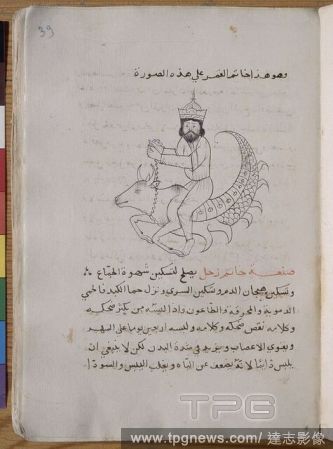 39
وهو هذا خاتم القمر علي هذه الصورة
صنعة خاتم زحل يصلح لتسكين شهوة الجماع
وتسكين هيجان الدم وتسكين السري ونزل حما الكبد
الدموية والمحرقة والطاعون واذا لبسه من يكثر ضحكه
وكلامه نقص ضحكه وكلامه ولبسه اربعين يوما علي السهر
ويقوي الاعصاب ويزيد في مدة البدن لكن لا ينبغي ان
يلبس دايما لانه يضعف عن الباه ويغلب اليبس والسودا
TPG
www.tpgnews.com/ 達志影像